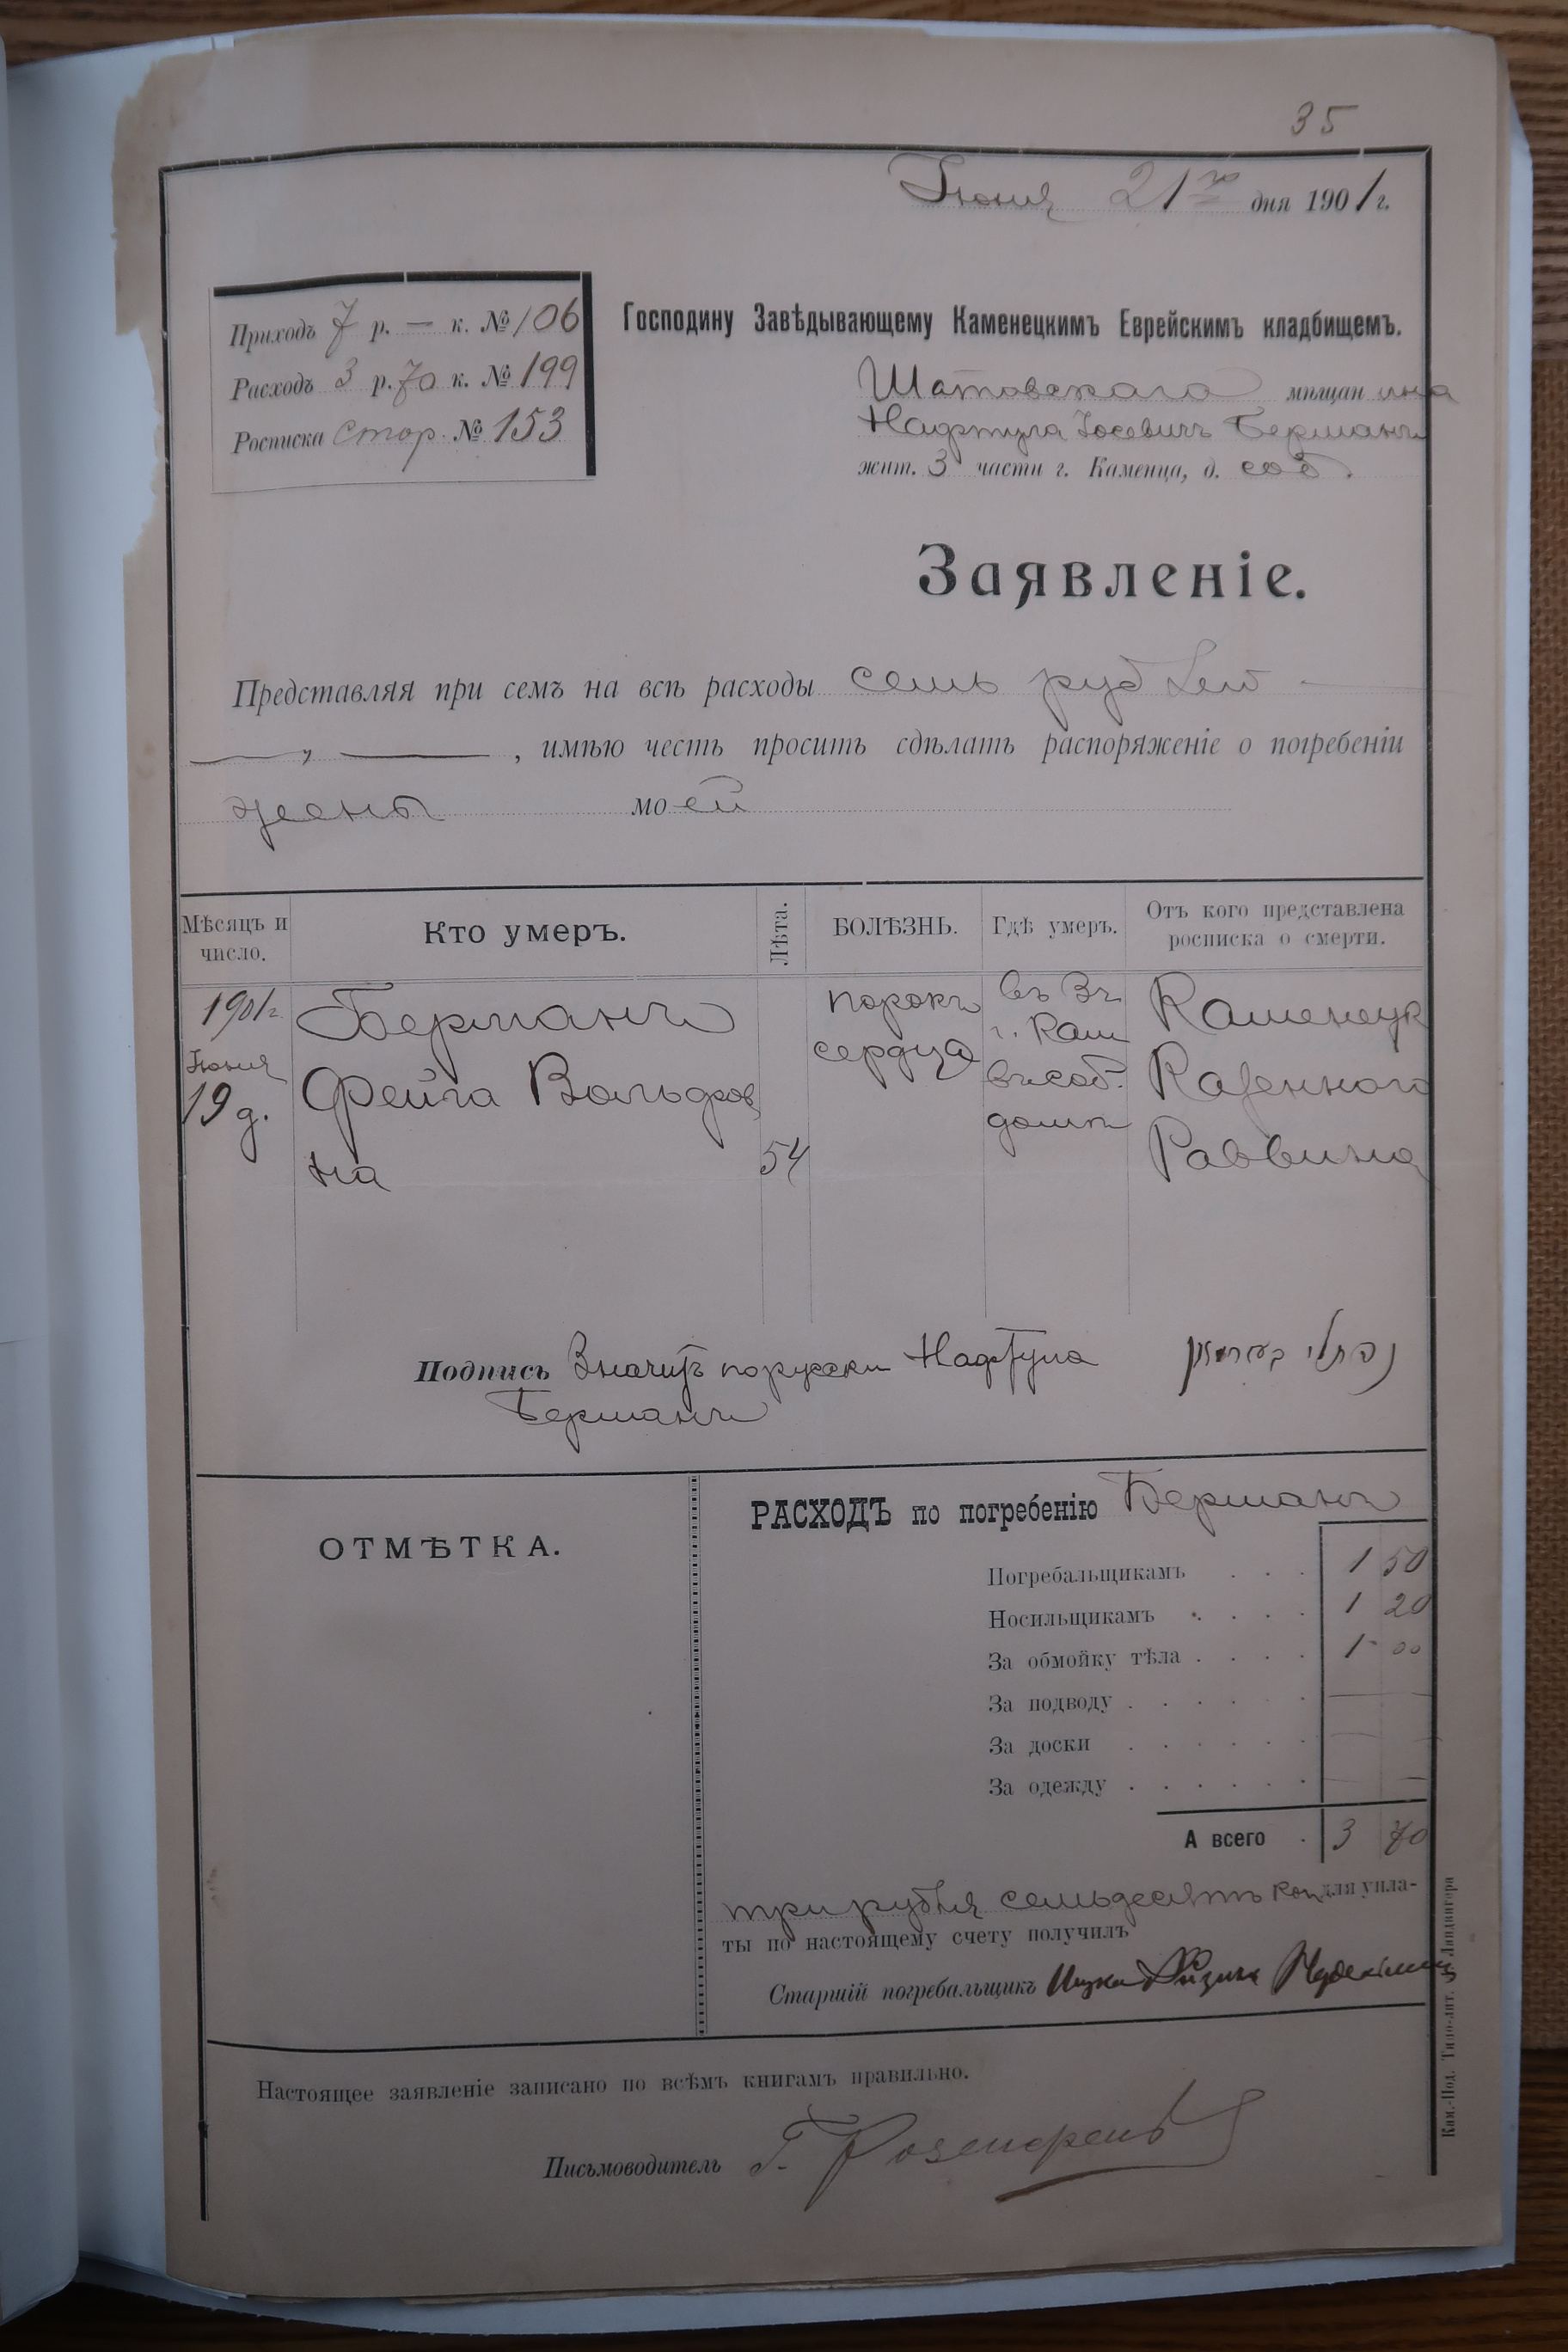 35
Іюня 21го дня 1901 г.
Приходъ 7 р. — к. № 106
Расходъ 3 р. 70 к. № 199
Росписка стор. № 153
Господину Завѣдывающему Каменецкимъ Еврейскимъ кладбищемъ.
Шатовскаго мѣщанина
Нафтула Іосевичъ Берманъ
жит. 3 части г. Каменца, д. соб.
Заявленіе.
Представляя при семъ на всѣ расходы семь рублей —
— „ — , имѣю честь просить сдѣлать распоряженіе о погребеніи
жены моей
Мѣсяцъ и число.
Кто умеръ.
Лѣта.
БОЛѢЗНЬ.
Гдѣ умеръ.
Отъ кого представлена росписка о смерти.
1901 г.
Іюня
19 д.
Берманъ
Фейга Вольфов
на
54
порокъ
сердца
въ
г. Кам
въ соб.
домѣ
Каменецк
Казенного
Раввина
Подпись Значитъ порусски Нафтула
Берманъ
נפתלי בערמאן
ОТМѢТКА.
РАСХОДЪ по погребенію Берманъ
Погребальщикамъ . . . 1 50
Носильщикамъ . . . . 1 20
За обмойку тѣла . . . . 1 00
За подводу . . . . . . —
За доски . . . . . . —
За одежду . . . . . . —
А всего . 3 70
три рубля семьдесятъ коп для упла-
ты по настоящему счету получилъ
Старшій погребальщикъ Ицко
Настоящее заявленіе записано по всѣмъ книгамъ правильно.
Письмоводитель Г.
Кам.-Под. Типо-лит. Ландвигера